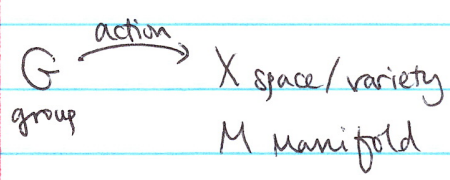 action
G X space/variety
group
M manifold